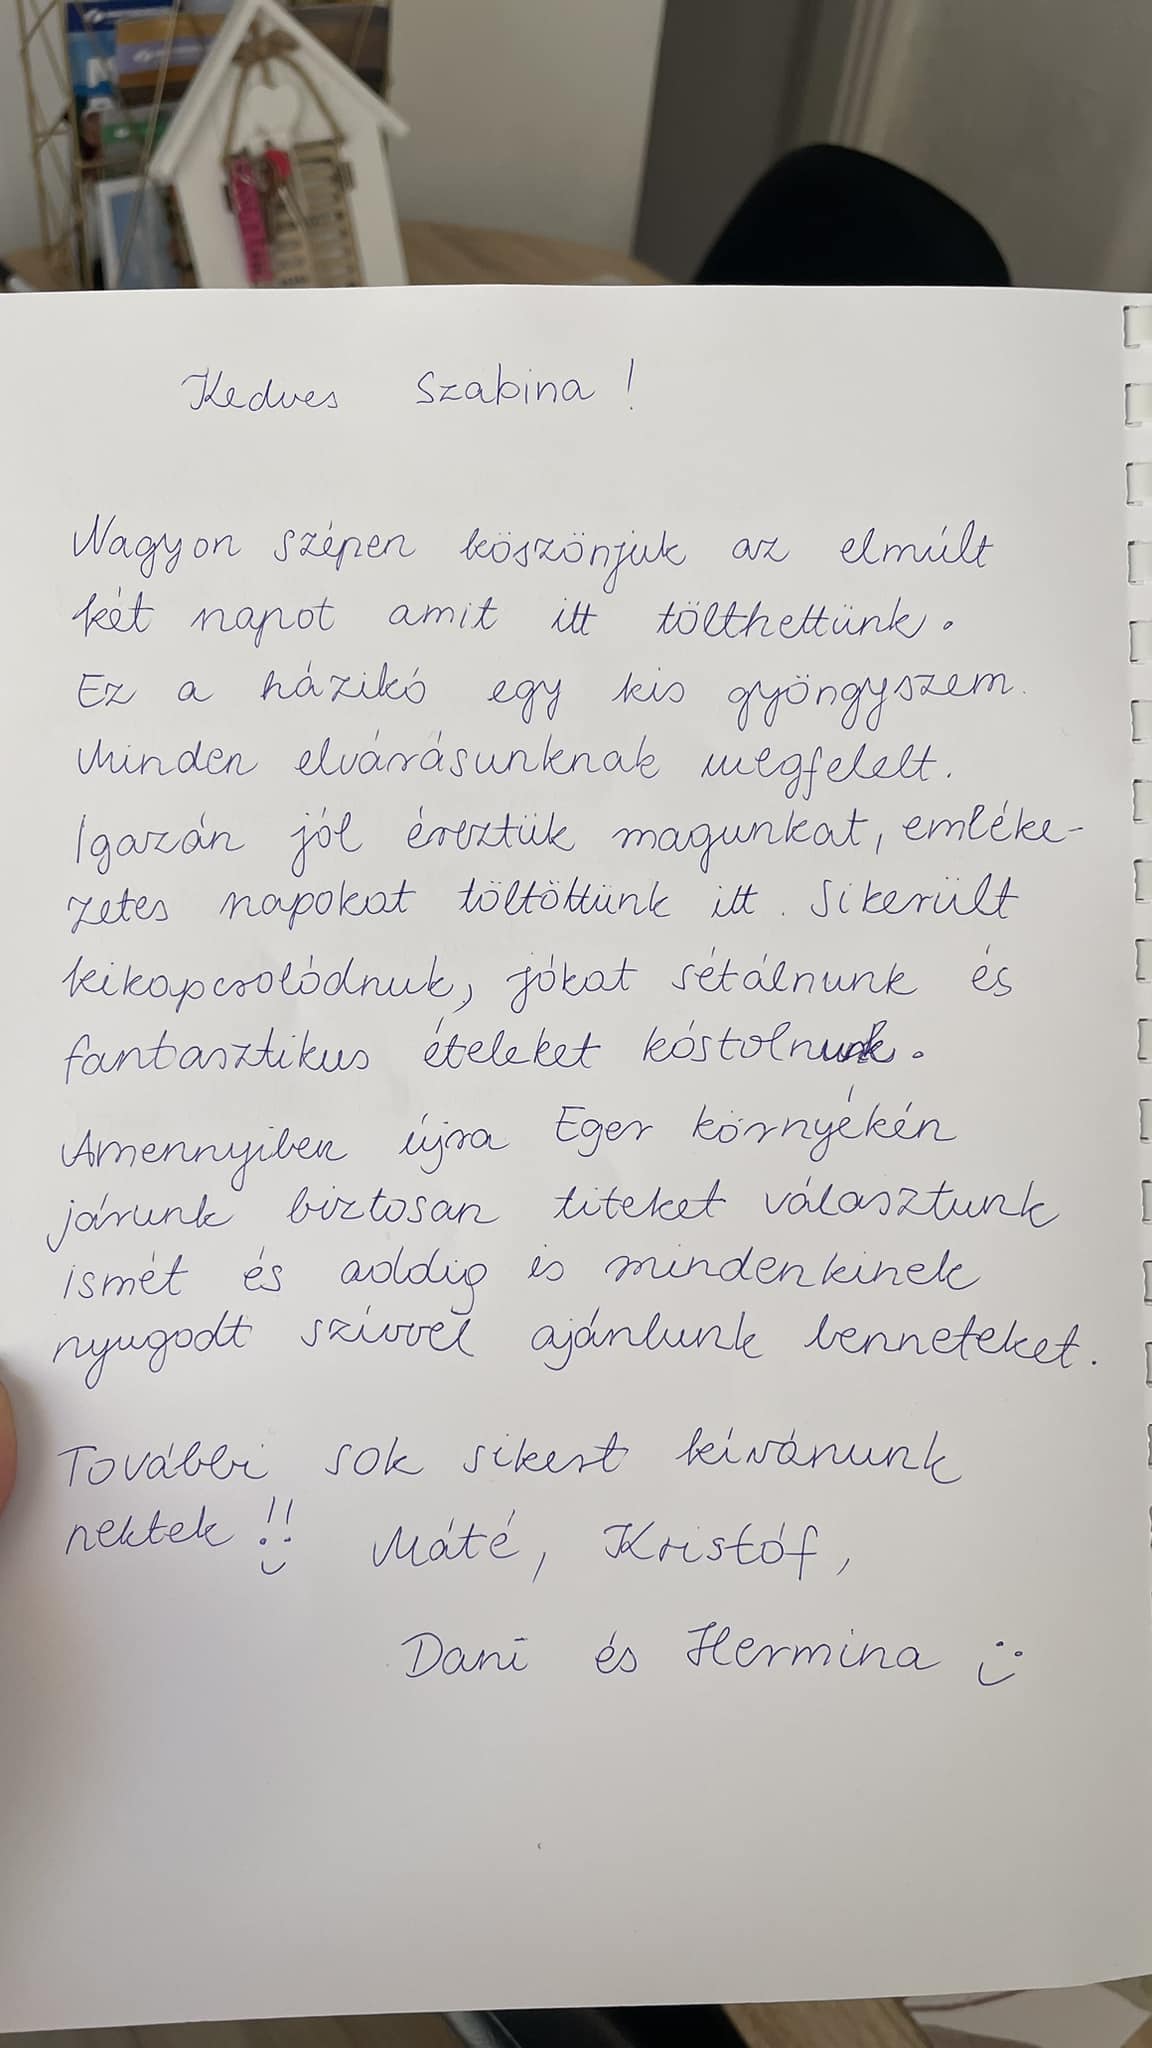 Kedves Szabina!
Nagyon szépen köszönjük az elmúlt
két napot amit itt tölthettünk.
Ez a házikó egy kis gyöngyszem.
Minden elvárásunknak megfelelt.
Igazán jól éreztük magunkat, emléke-
zetes napokat töltöttünk itt. Sikerült
kikapcsolódnuk, jókat sétálnunk és
fantasztikus ételeket kóstolnunk.
Amennyiben újra Eger környékén
járunk biztosan titeket választunk
ismét és addig is mindenkinek
nyugodt szívvel ajánlunk benneteket.
További sok sikert kívánunk
nektek!! Máté, Kristóf,
Dani és Hermina